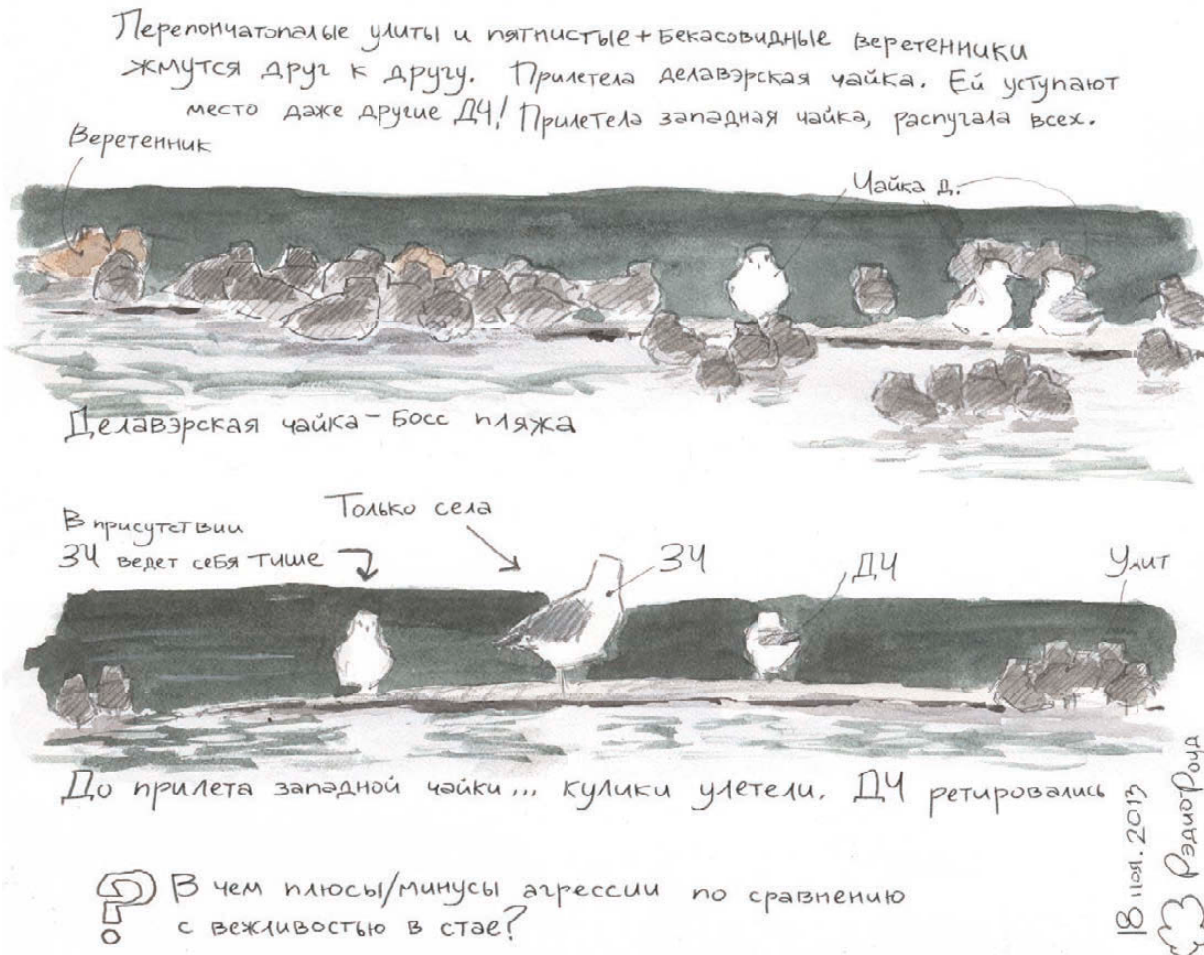 Перепончатопалые улиты и пятнистые + бекасовидные веретенники
жмутся друг к другу. Прилетела делавэрская чайка. Ей уступают
место даже другие ДЧ! Прилетела западная чайка, распугала всех.
Веретенник
Чайка д.
Делавэрская чайка – босс пляжа
В присутствии
ЗЧ ведет себя тише
Только села
ЗЧ
ДЧ
Улит
До прилета западной чайки... кулики улетели. ДЧ ретировались
? В чем плюсы/минусы агрессии по сравнению
с вежливостью в стае?
18 ноя. 2013